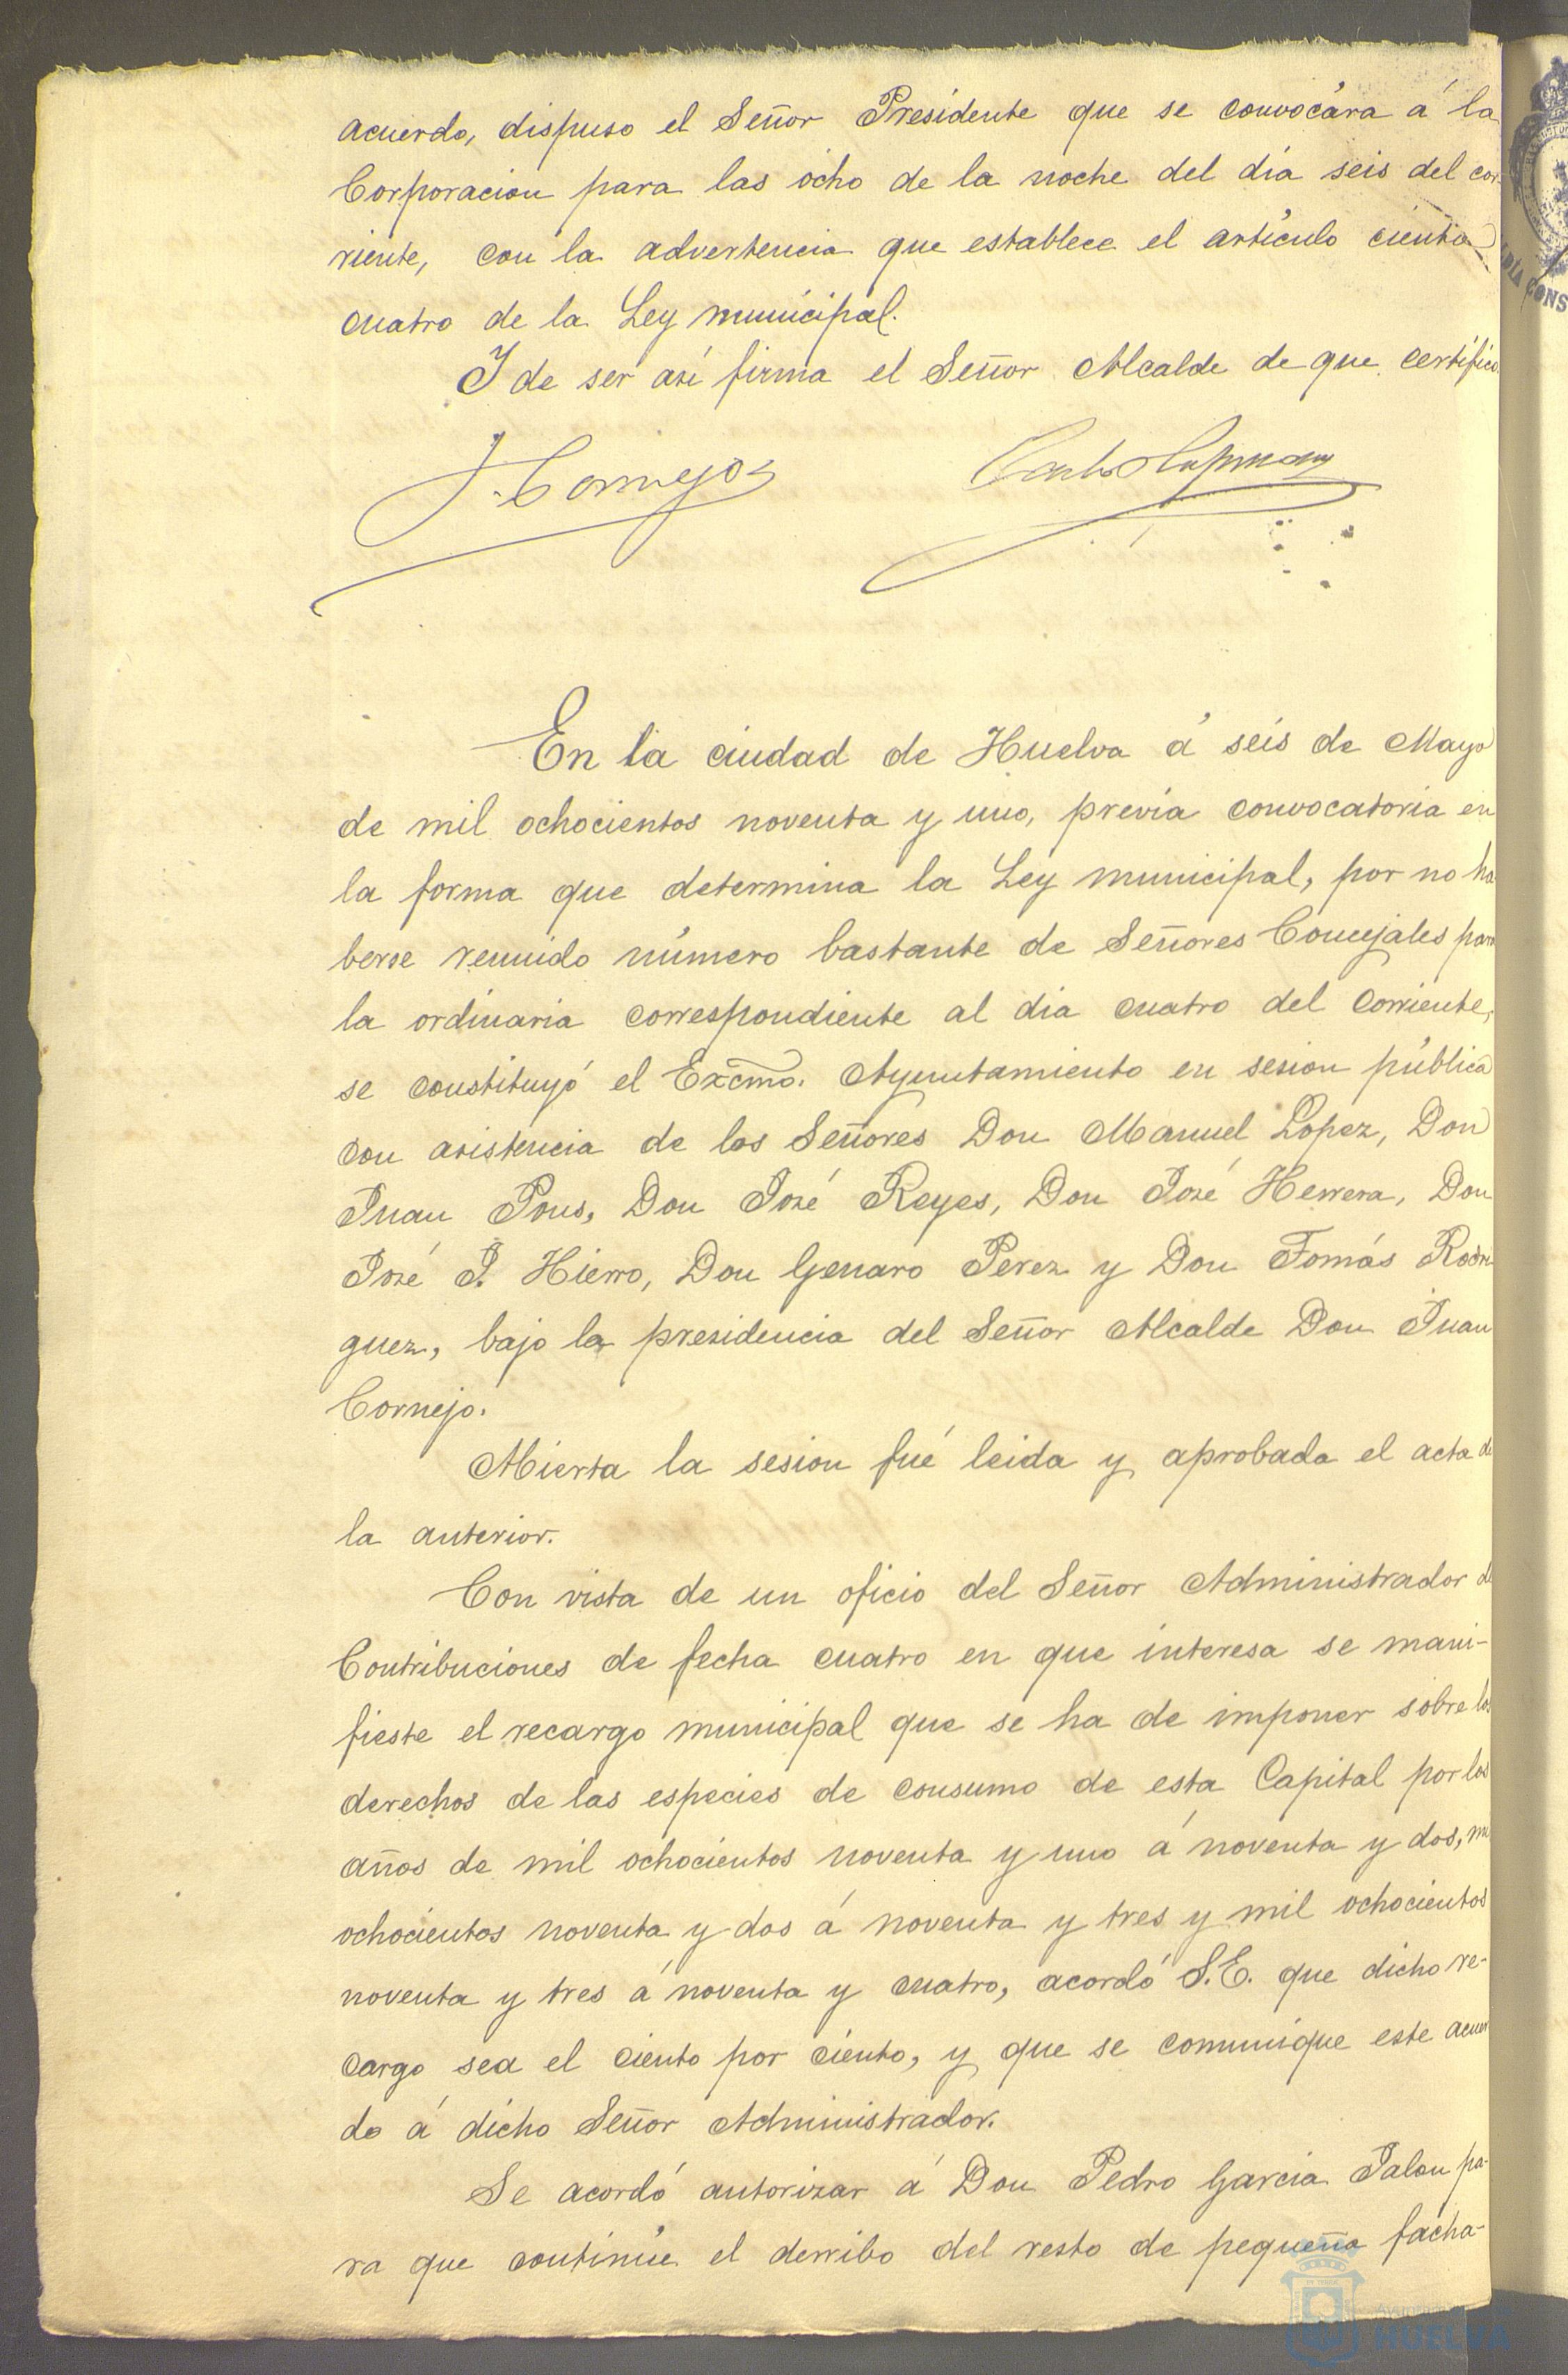 acuerdo, dispuso el Señor Presidente que se convocára á la
Corporacion para las ocho de la noche del dia seis del cor-
riente, con la advertencia que establece el artículo ciento
cuatro de la Ley municipal.
Y de ser así firma el Señor Alcalde de que certifico.
J. Cornejo
En la ciudad de Huelva á seis de Mayo
de mil ochocientos noventa y uno, prévia convocatoria en
la forma que determina la Ley municipal, por no ha
berse reunido número bastante de Señores Concejales para
la ordinaria correspondiente al dia cuatro del corriente,
se constituyó el Excmo. Ayuntamiento en sesion pública
con asistencia de los Señores Don Manuel Lopez, Don
Juan Pons, Don José Reyes, Don José Herrera, Don
José P. Hierro, Don Genaro Perez y Don Tomás Rodri
guez, bajo la presidencia del Señor Alcalde Don Juan
Cornejo.
Abierta la sesion fué leida y aprobada el acta de
la anterior.
Con vista de un oficio del Señor Administrador de
Contribuciones de fecha cuatro en que interesa se mani-
fieste el recargo municipal que se ha de imponer sobre los
derechos de las especies de consumo de esta Capital por los
años de mil ochocientos noventa y uno á noventa y dos, mil
ochocientos noventa y dos á noventa y tres y mil ochocientos
noventa y tres á noventa y cuatro, acordó S.E. que dicho re-
cargo sea el ciento por ciento, y que se comunique este acuer
do á dicho Señor Administrador.
Se acordó autorizar á Don Pedro Garcia Jalon pa-
ra que continúe el derribo del resto de pequeña facha-
HUELVA